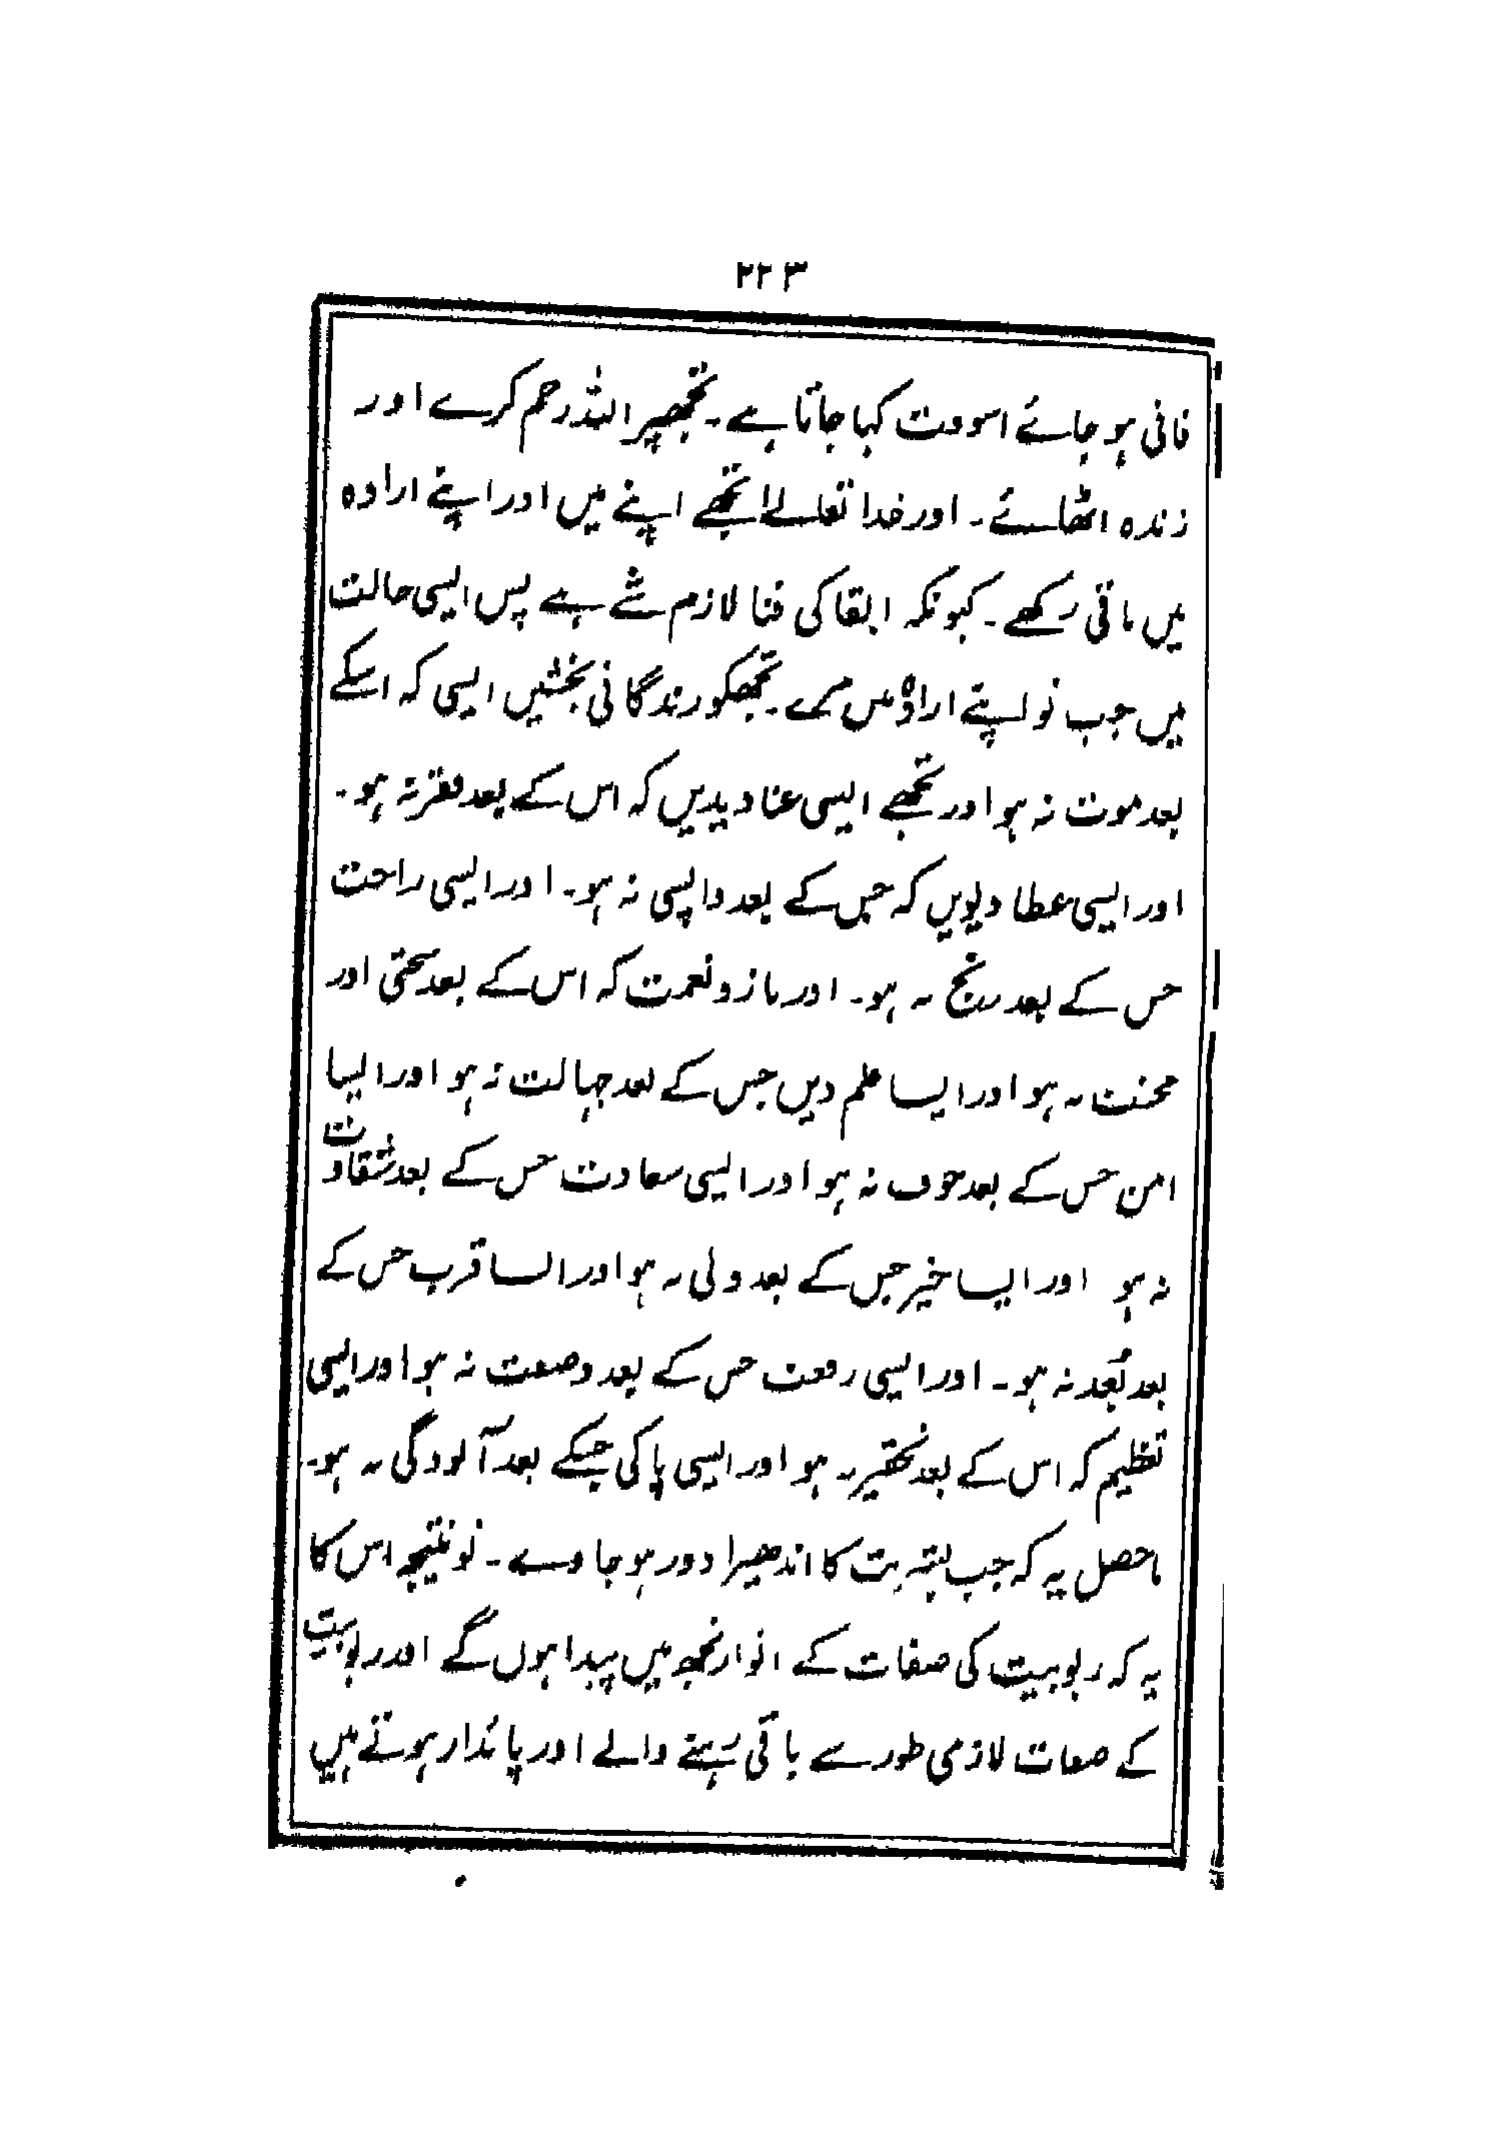 ۲۲۳
فانی ہو جائے اسوقت کہا جاتا ہے۔ تجھپر اللہ رحم کرے اور
زندہ اٹھائے۔ اور خدا تعالےٰ تجھے اپنے میں اور اپنے ارادہ
میں باقی رکھے۔ کیونکہ ابقا کی فنا لازم شے ہے پس ایسی حالت
میں جب تو اپنے ارادہ میں مرے۔ تجھکو زندگانی بخشیں ایسی کہ اسکے
بعد موت نہ ہو اور تجھے ایسی غنا دیدیں کہ اس کے بعد فقر نہ ہو۔
اور ایسی عطا دیویں کہ جس کے بعد واپسی نہ ہو۔ اور ایسی راحت
جس کے بعد رنج نہ ہو۔ اور ناز و نعمت کہ اس کے بعد سختی اور
محنت نہ ہو اور ایسا علم دیں جس کے بعد جہالت نہ ہو اور ایسا
امن جس کے بعد خوف نہ ہو اور ایسی سعادت جس کے بعد شقاوت
نہ ہو اور ایسا خیر جس کے بعد ولی نہ ہو اور ایسا قرب جس کے
بعد بُعد نہ ہو۔ اور ایسی رفعت جس کے بعد وضعت نہ ہو اور ایسی
تعظیم کہ اس کے بعد تحقیر نہ ہو اور ایسی پاکی جسکے بعد آلودگی نہ ہو۔
ماحصل یہ کہ جب بشریت کا اندھیرا دور ہو جاوے۔ تو نتیجہ اس کا
یہ کہ ربوبیت کی صفات کے انوار تجھ میں پیدا ہوں گے اور ربوبیت
کے صفات لازمی طور سے باقی رہنے والے اور پائدار ہوتے ہیں